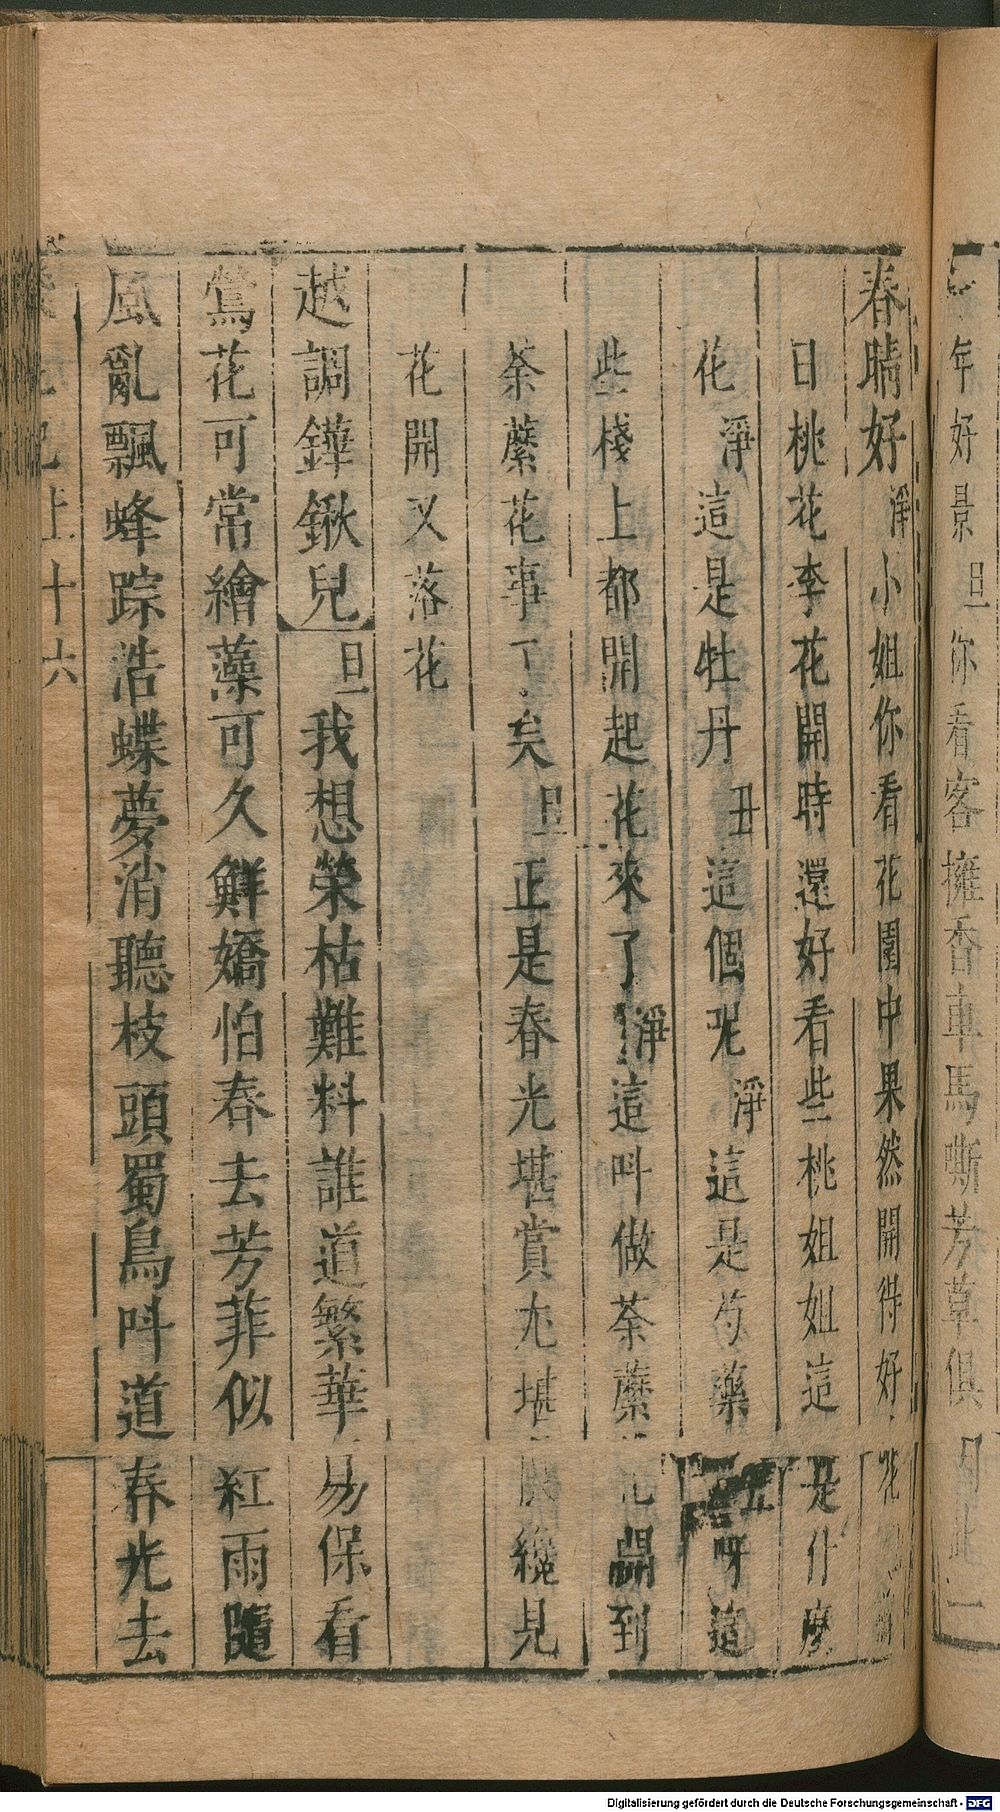 年好景旦你看客擁香車馬嘶芳草俱
春晴好淨小姐你看花園中果然開得好花
日桃花李花開時還好看些桃姐姐這是什麼
花淨這是牡丹丑這個呢淨這是芍藥丑呀這
些棧上都開起花來了淨這呌做荼蘼花開到
荼蘼花事了矣旦正是春光堪賞尤堪 纔見
花開又落花
越調鏵鍬兒旦我想榮枯難料誰道繁華易保看
鶯花可常繪藻可久鮮嬌怕春去芳菲似紅雨隨
風亂飄蜂踪浩蝶夢消聽枝頭蜀鳥呌道春光去
上十六
Digitalisierung gefördert durch die Deutsche Forschungsgemeinschaft - DFG